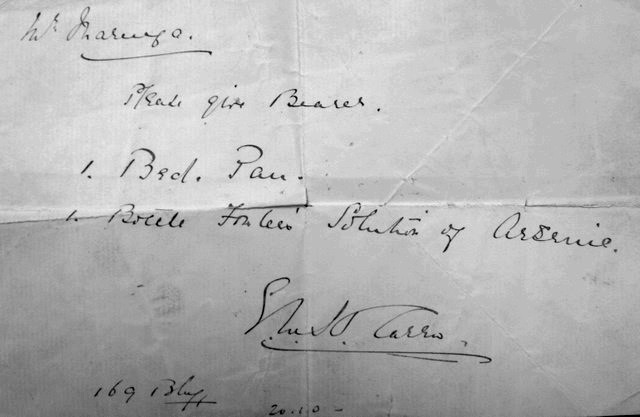 Mr
Please give Bearer.
1. Bed. Pan.
1. Bottle Fowler's Solution of Arsenic.
169 Bluff
20.10 -